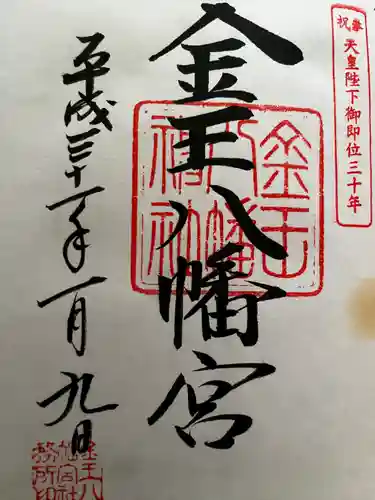 奉祝
天皇陛下御即位三十年
金王八幡宮
金王
八幡
神社
平成三十一年一月九日
金王八
幡宮社
務所印